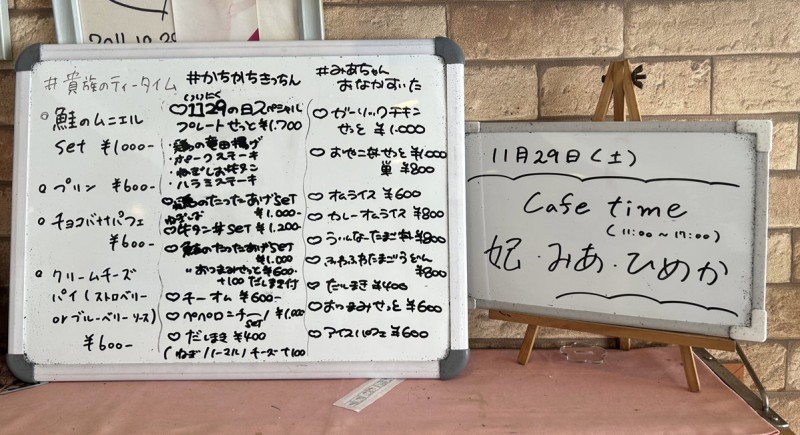 2011.10.29
#貴族のティータイム
鮭のムニエル
set ¥1000-
プリン ¥600-
チョコバナナパフェ
¥600-
クリームチーズ
パイ(ストロベリー
orブルーベリーソース)
¥600-
#かちかちきっちん
いいにく
♡1129の日スペシャル
プレートせっと ¥1.700
・鶏の竜田揚げ
・ポークステーキ
・ねぎしお牛タン
・ハラミステーキ
♡鶏のたったあげset
¥1.000-
ねぎしお
♡牛タン丼set ¥1.200-
♡鮭のたったあげset
¥1.000
"おつまみせっと ¥600-
+100 だしまき付
♡チーオム ¥600-
♡ペペロニチーノ ¥1.000
set
♡だしまき ¥400
(ねぎ/ノーマル/チーズ+100
#みあちゃん
おなかすいた
♡ガーリックチキン
せっと ¥1.000
♡おやこ丼せっと ¥1000
単 ¥800
♡オムライス ¥600
♡カレーオムライス ¥800
♡ういんなーたまご丼 ¥800
♡ふわふわたまごうどん
¥800
♡だしまき ¥400
♡おつまみせっと ¥600
♡アイスパフェ ¥600
11月29日(土)
Cafe time
(11:00~17:00)
妃・みあ・ひめか